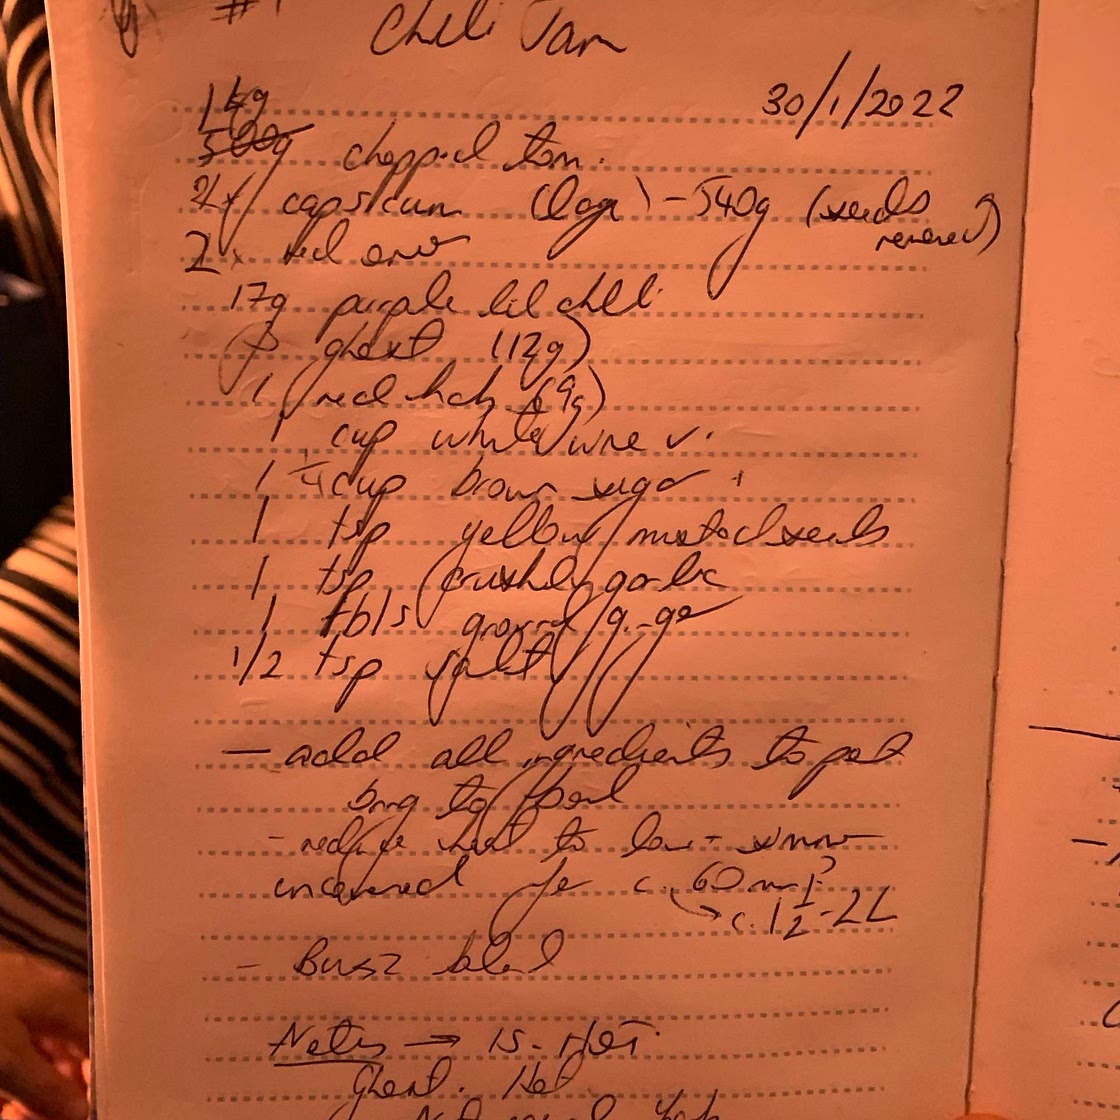 #1
Chili Jam
30/1/2022
1kg
500g chopped tom.
2x capsicum (large) - 540g (seeds
removed)
2x red onion
17g purple lil chili
ghost (12g)
1 red hab (9g)
1 cup white wine v.
1 1/4 cup brown sugar
1 tsp yellow mustard seeds
1 tsp crushed garlic
1 tbls ground ginger
1/2 tsp salt
— add all ingredients to pot
bring to boil
- reduce heat to low + simmer
uncovered for c. 60 min?
→ c. 1 1/2 - 2L
- Buzz blend
Notes → is HOT.
Ghost. Hot